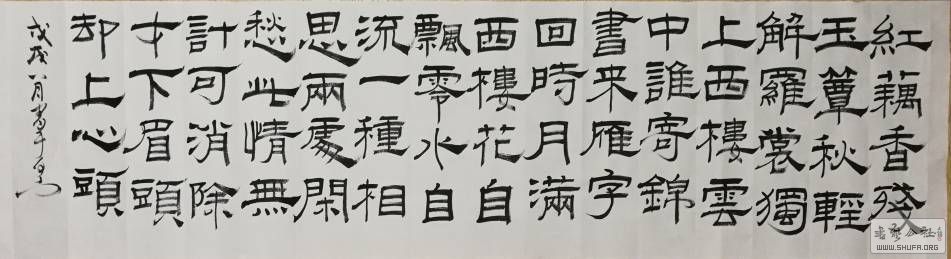 紅藕香殘
玉簟秋輕
解羅裳獨
上西樓雲
中誰寄錦
書来雁字
回時月滿
西樓花自
飄零水自
流一種相
思兩處閑
愁此情無
計可消除
才下眉頭
却上心頭
戊戌八月書于
WWW.SHUFA.ORG